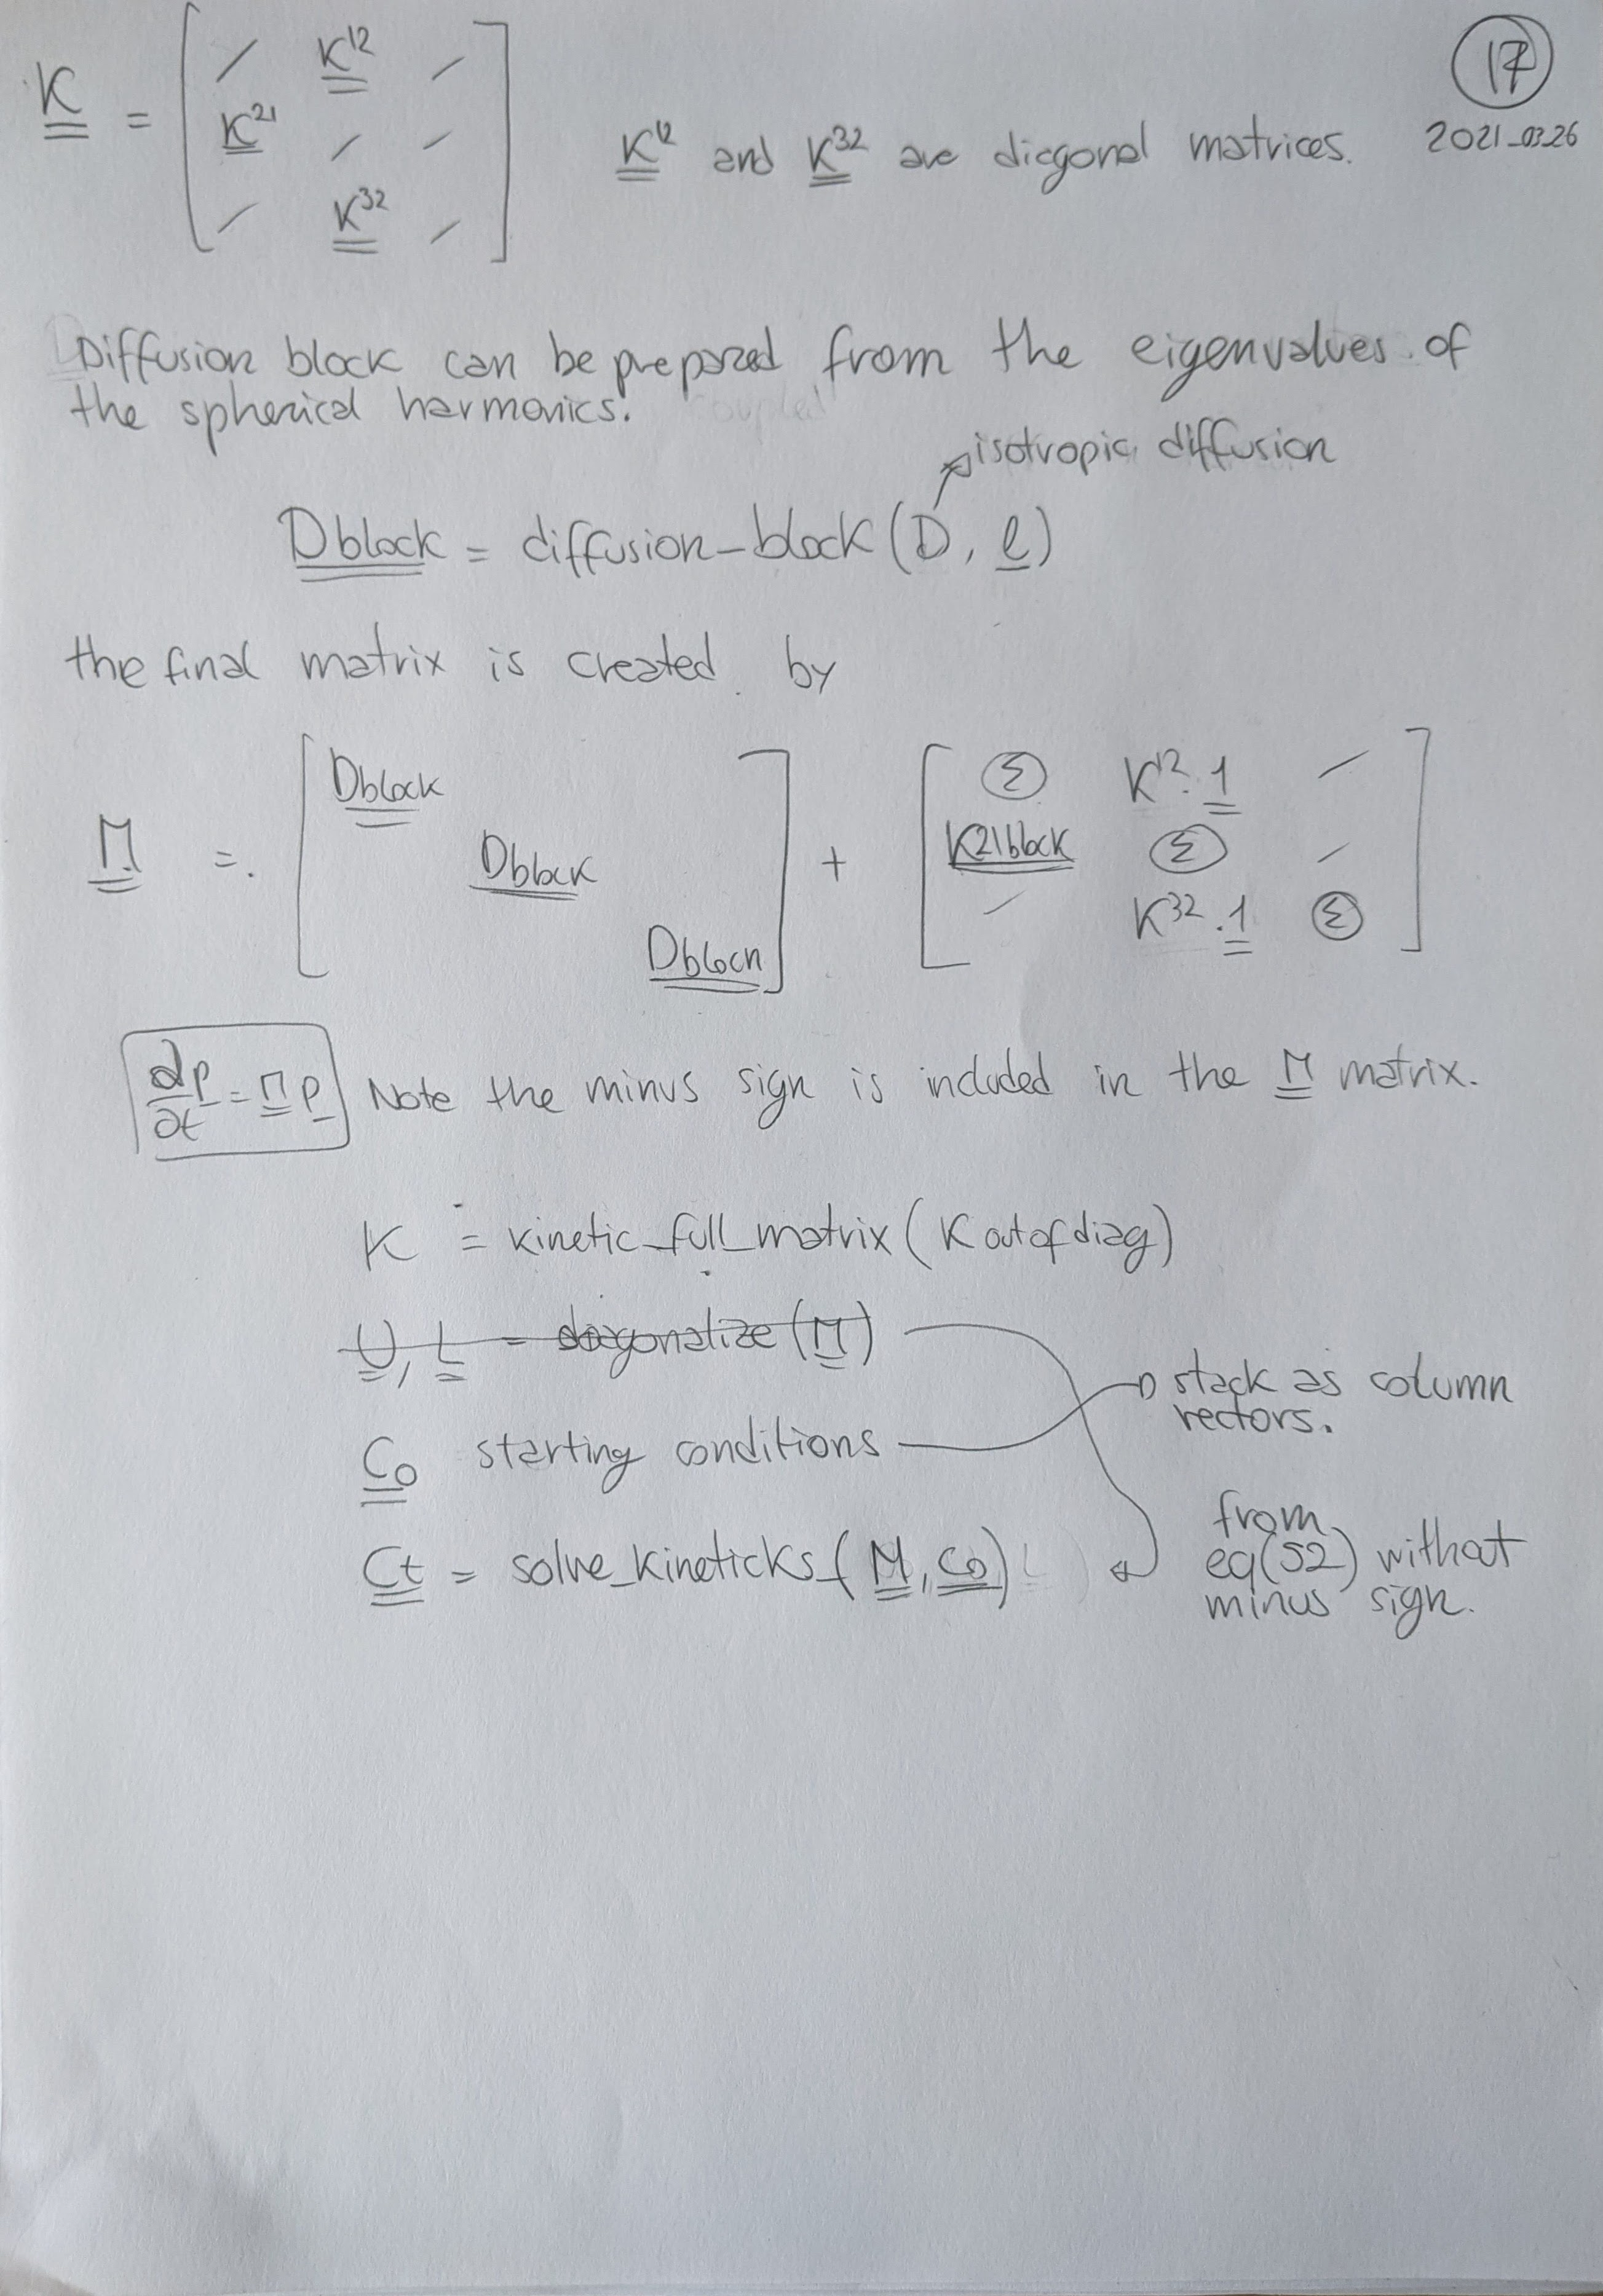 17
2021_03_26
K = [ / K¹² /
K²¹ / /
/ K³² / ]
K¹² and K³² are diagonal matrices.
Diffusion block can be prepared from the eigenvalues of
the spherical harmonics. coupled
isotropic diffusion
Dblock = diffusion_block(D, l)
the final matrix is created by
M = [ Dblock
Dblock
Dblock ] + [ Σ K¹².1 /
K21block Σ /
/ K³².1 Σ ]
∂p/∂t = M p Note the minus sign is included in the M matrix.
K = kinetic_full_matrix(K outofdiag)
U, L = diagonalize(M)
stack as column
vectors.
C0 starting conditions
from
Ct = solve_kineticks(M, C0)
eq(52) without
minus sign.